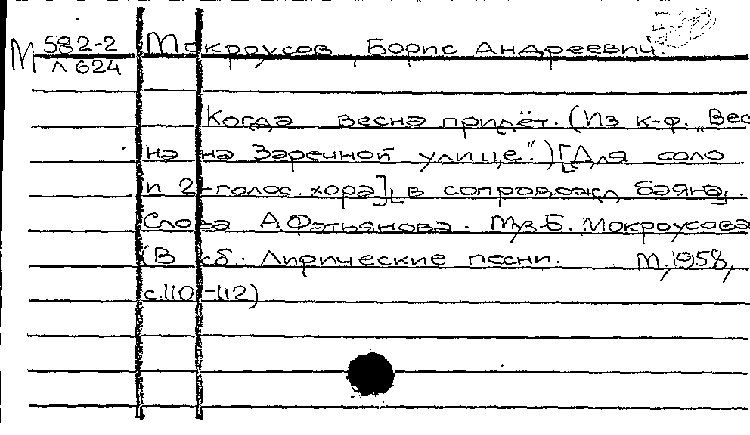 М 582-2 Мокроусов, Борис Андреевич.
Л 624
Когда весна придёт. (Из к-ф. „Вес
на на Заречной улице".) [Для соло
и 2-голос. хора], в сопровожд. баяна.
Слова А. Фатьянова. Муз. Б. Мокроусова
(В сб. Лирические песни. М., 1958,
с. 110-112)